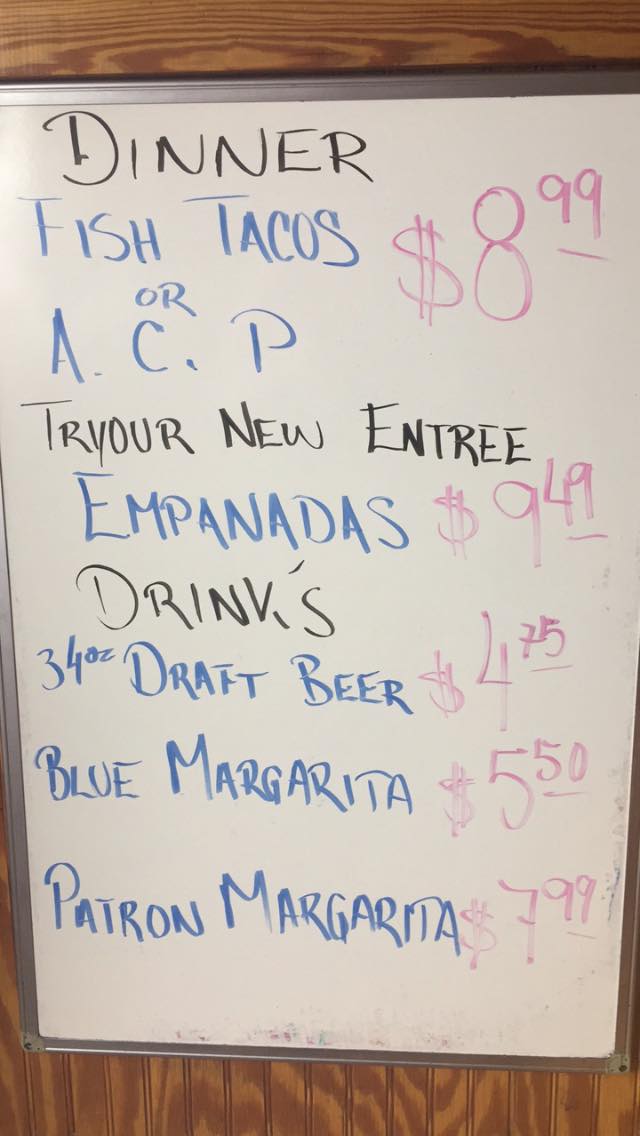 DINNER
FISH TACOS $8.99
OR
A. C. P
TRYOUR NEW ENTREE
EMPANADAS $9.49
DRINK'S
34oz DRAFT BEER $4.75
BLUE MARGARITA $5.50
PATRON MARGARITA $7.99